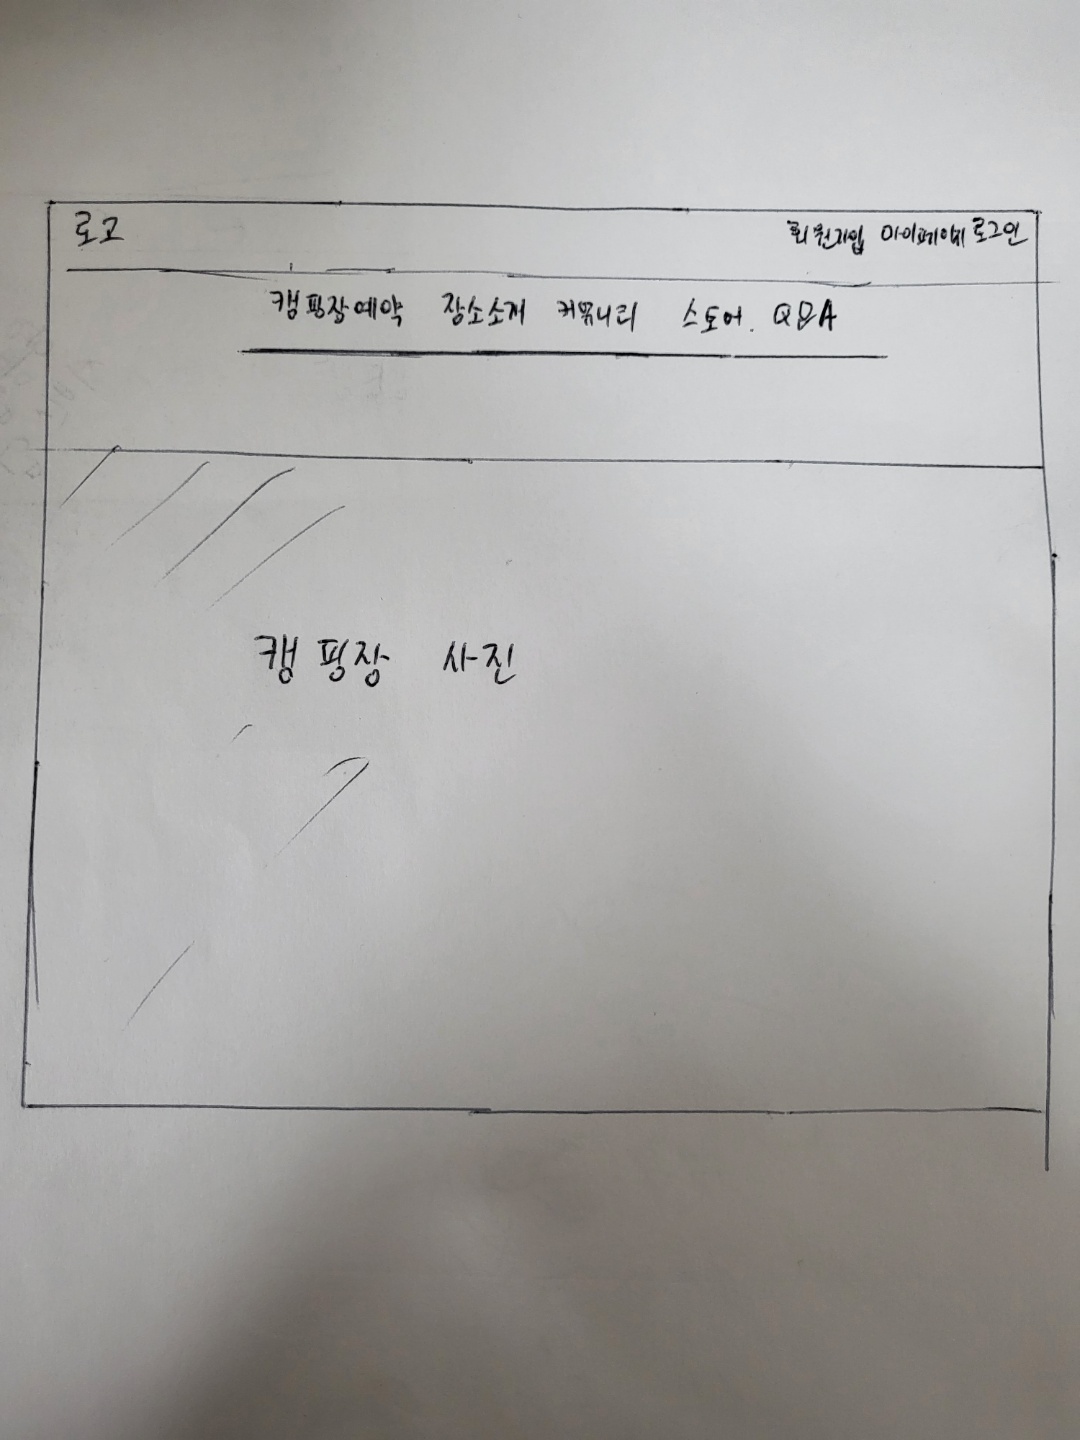 로고 회원가입 마이페이지 로그인
캠핑장예약 장소소개 커뮤니티 스토어. Q&A
캠핑장 사진